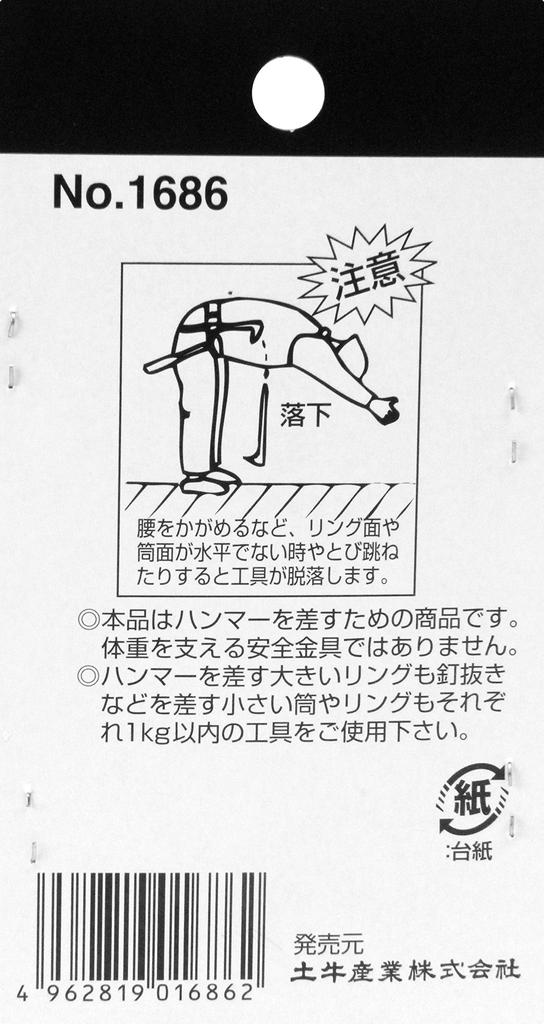 No.1686
注意
落下
腰をかがめるなど、リング面や
筒面が水平でない時やとび跳ね
たりすると工具が脱落します。
◎本品はハンマーを差すための商品です。
体重を支える安全金具ではありません。
◎ハンマーを差す大きいリングも釘抜き
などを差す小さい筒やリングもそれぞ
れ1kg以内の工具をご使用下さい。
紙
:台紙
発売元
土牛産業株式会社
4 962819 016862